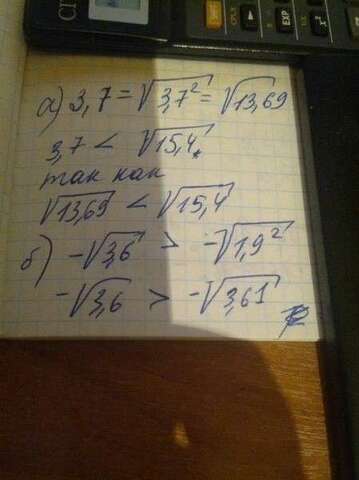 СИ
EXP
а) 3,7 = √3,7² = √13,69
3,7 < √15,4.
так как
√13,69 < √15,4
б) -√3,6 > -√1,9²
-√3,6 > -√3,61